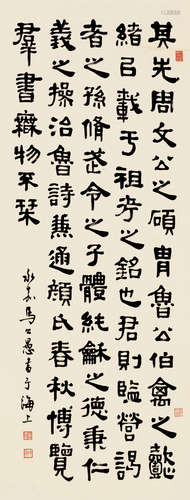 其先周文公之碩冑魯公伯禽之懿
緒㠯載于祖考之銘也君則監營謁
者之孫脩武令之子體純龢之德秉仁
義之操治魯詩兼通顏氏春秋博覽
羣書無物不栞
永嘉馬公愚書于海上